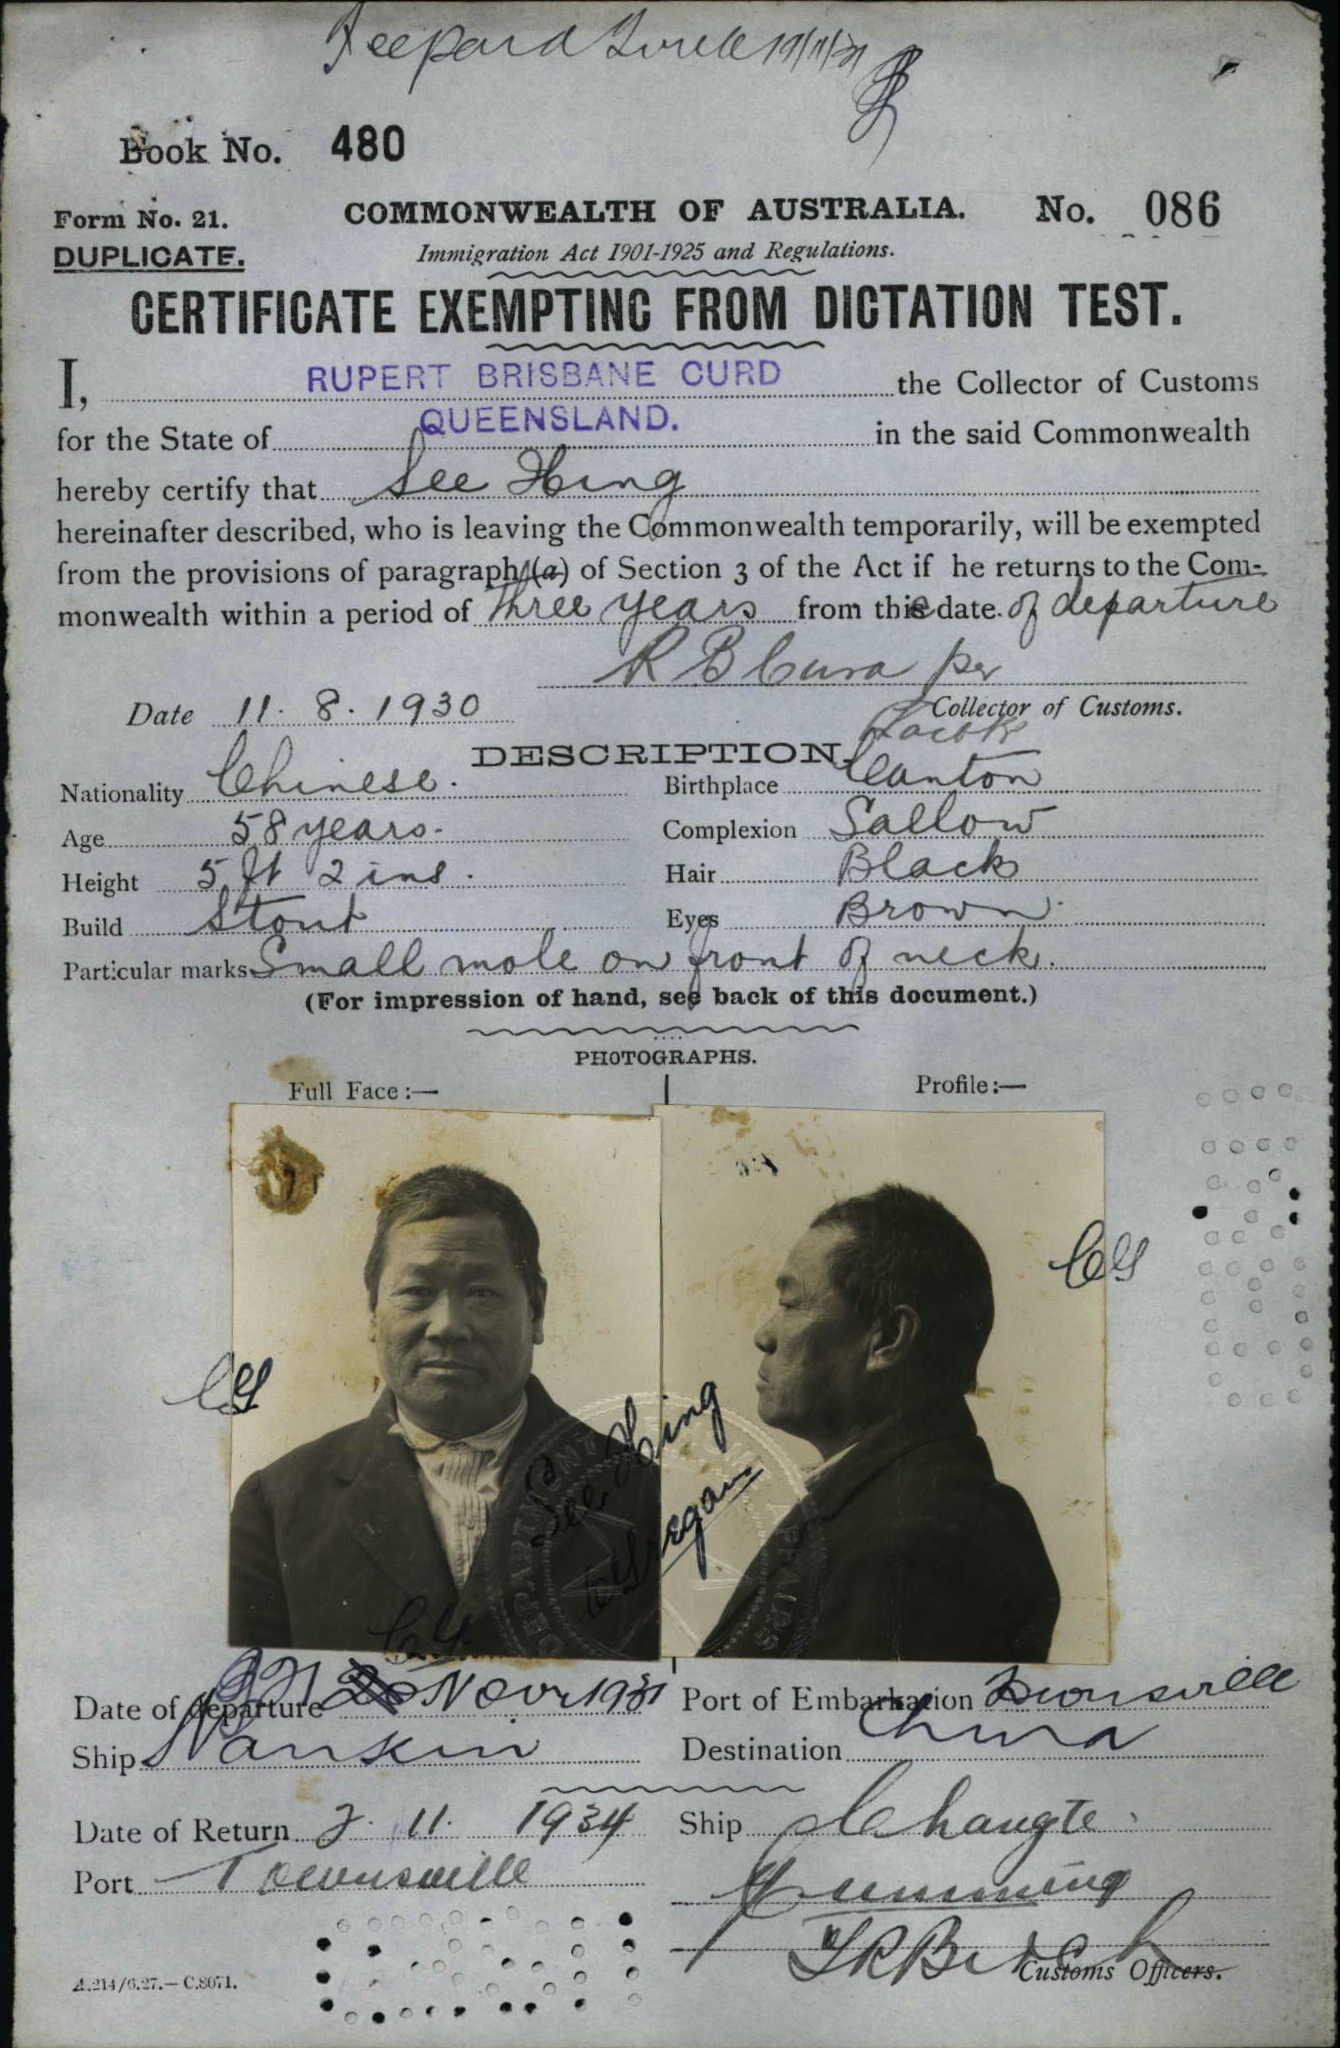 19/11/31
Book No. 480
Form No. 21.
COMMONWEALTH OF AUSTRALIA.
No. 086
DUPLICATE.
Immigration Act 1901-1925 and Regulations.
CERTIFICATE EXEMPTING FROM DICTATION TEST.
I, RUPERT BRISBANE CURD the Collector of Customs
for the State of QUEENSLAND. in the said Commonwealth
hereby certify that See Hing
hereinafter described, who is leaving the Commonwealth temporarily, will be exempted
from the provisions of paragraph (a) of Section 3 of the Act if he returns to the Com-
monwealth within a period of three years from the date of departure
R B Curd per
Date 11. 8. 1930
Collector of Customs.
DESCRIPTION.
Nationality Chinese.
Birthplace Canton
Age 58 years.
Complexion Sallow
Height 5 ft 2 ins.
Hair Black
Build Stout
Eyes Brown.
Particular marks Small mole on front of neck.
(For impression of hand, see back of this document.)
PHOTOGRAPHS.
Full Face:—
Profile:—
CG
CG
See Hing
CGregan
CG
DEPARTMENT
Date of departure 21 Nov 1931
Port of Embarkation Townsville
Ship Nankin
Destination China
Date of Return 2. 11. 1934
Ship Changte
Port Townsville
Cumming
Birch
A.214/6.27.—C.8071.
Customs Officers.